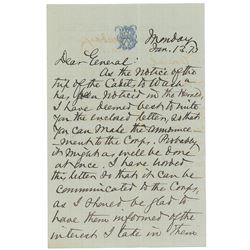 Monday
Jan. 12. 73
Dear General:
As the Notice of the
trip of the Cadets to Wash
has been noticed in the Herald,
I have deemed best to write
you the enclosed letter, so that
you can make the announce-
ment to the Corps. Probably
it might as well be done
at once. I have worded
this letter so that it can be
communicated to the Corps,
as I should be glad to
have them informed of the
interest I take in them